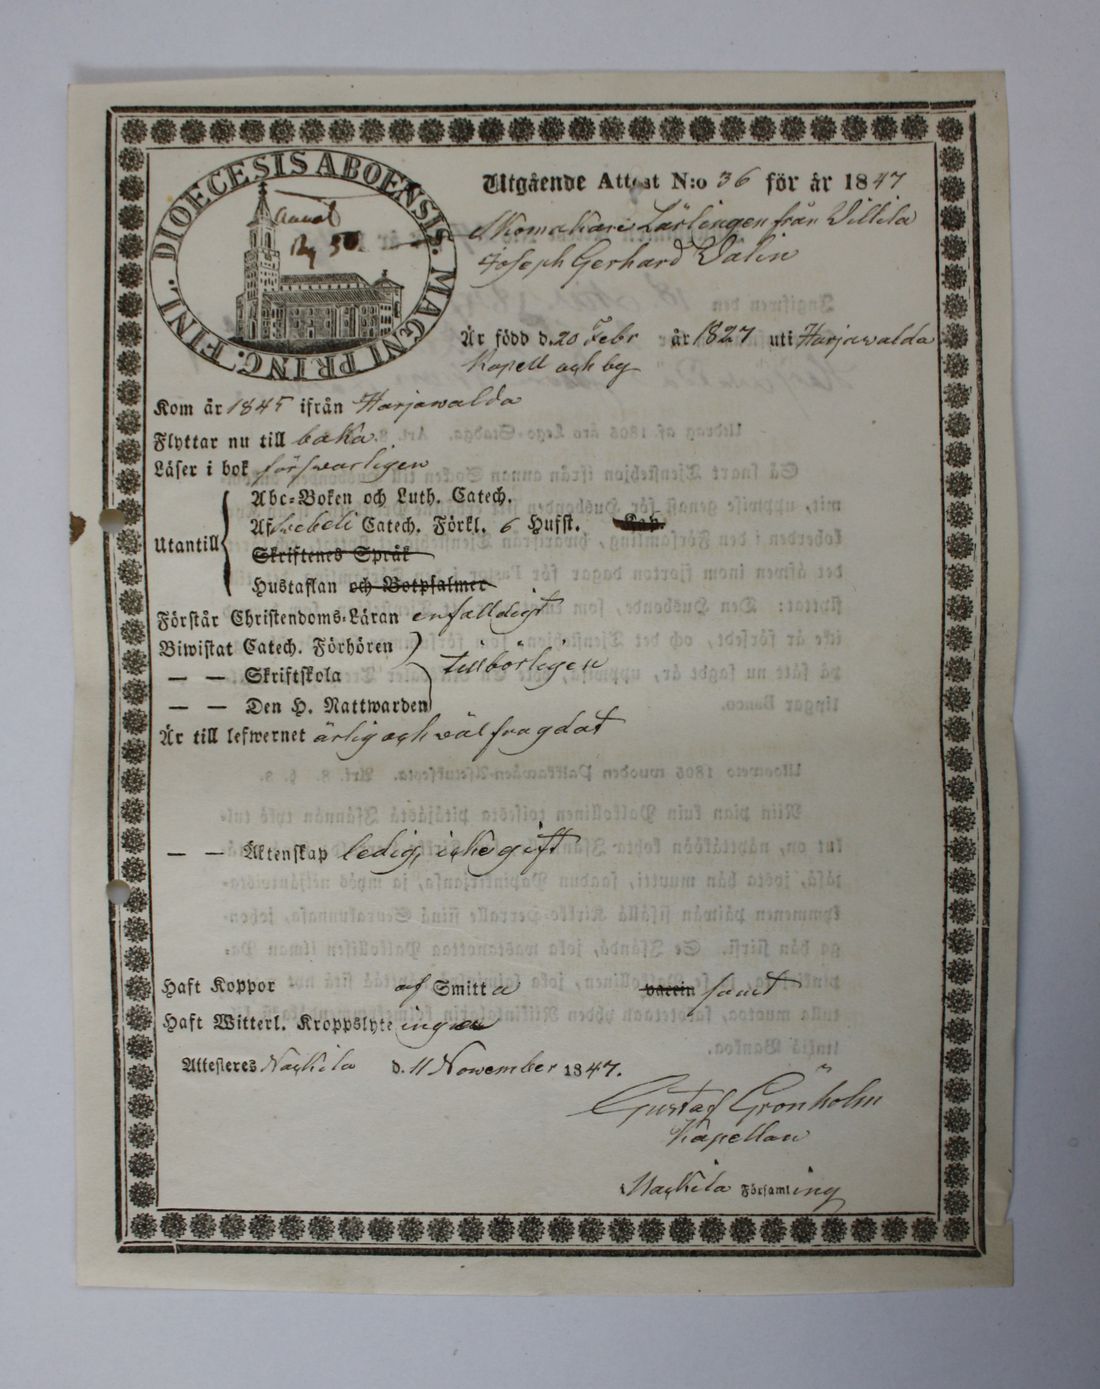 DIOECESIS ABOENSIS. MAGNI PRINC. FINL.
Utgående Attest N:o 36 för år 1847
Skomakare Lärlingen från Villila
Joseph Gerhard Dalin
Är född d. 20 Febr år 1827 uti Harjawalda
Kapell och by
Kom år 1845 ifrån Harjawalda
Flyttar nu till baka.
Läser i bok förswarligen
Utantill
Abc-Boken och Luth. Catech.
Af Svebeli Catech. Förkl. 6 Hufst. Kap.
Skriftenes Språk
Hustaflan och Botpsalmer
Förstår Christendoms-Läran enfalldigt
Biwistat Catech. Förhören
— — Skriftskola tillbörligen
— — Den H. Nattwarden
Är till lefwernet ärlig och wäl fragdat
— — Äktenskap ledig, icke gift
Haft Koppor af Smitta vaccin samt
Haft Witterl. Kroppslyte ingen
Attesteres Nackila d. 11 Nowember 1847.
Gustaf Grönholm
Kapellan
Nackila Församling